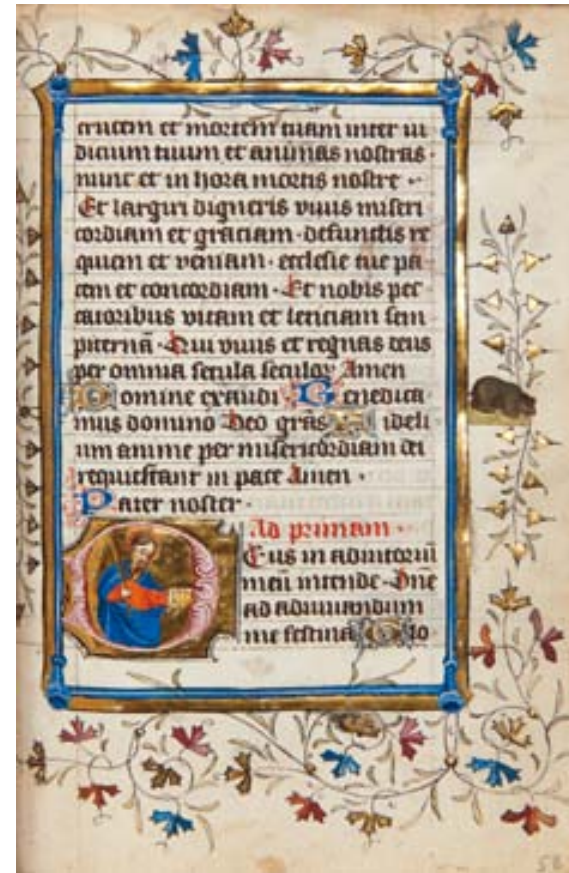 crucem et mortem tuam inter iu
dicium tuum et animas nostras·
nunc et in hora mortis nostre ·
Et largiri digneris viuis miseri
cordiam et graciam· defunctis re
quiem et veniam· ecclesie tue pa
cem et concordiam· Et nobis pec
catoribus vitam et leticiam sem
piternā· Qui viuis et regnas deus
per omnia secula seculoꝝ Amen
Domine exaudi Benedica
mus domino Deo gras Fideli
um anime per misericordiam dei
requiescant in pace Amen·
Pater noster·
Ad primam·
Eus in adiutoriū
meū intende· Dne
ad adiuuandum
me festina Glo
58